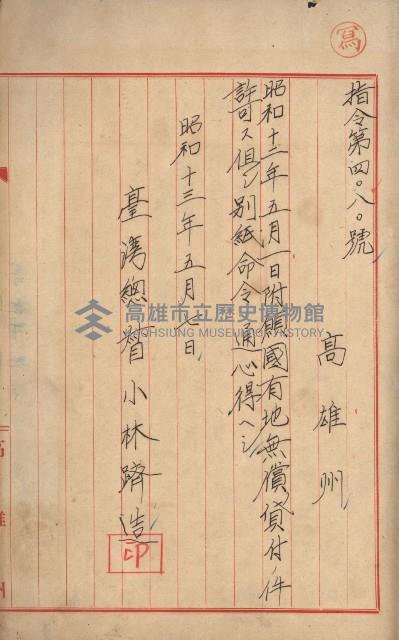 寫
指令第四〇八〇號
高雄州
昭和十二年五月一日附願國有地無償貸付ノ件
許可ス但シ別紙命令ノ通心得ヘシ
昭和十三年五月七日
臺灣總督小林躋造
印
高雄市立歷史博物館
KAOHSIUNG MUSEUM OF HISTORY
高雄州